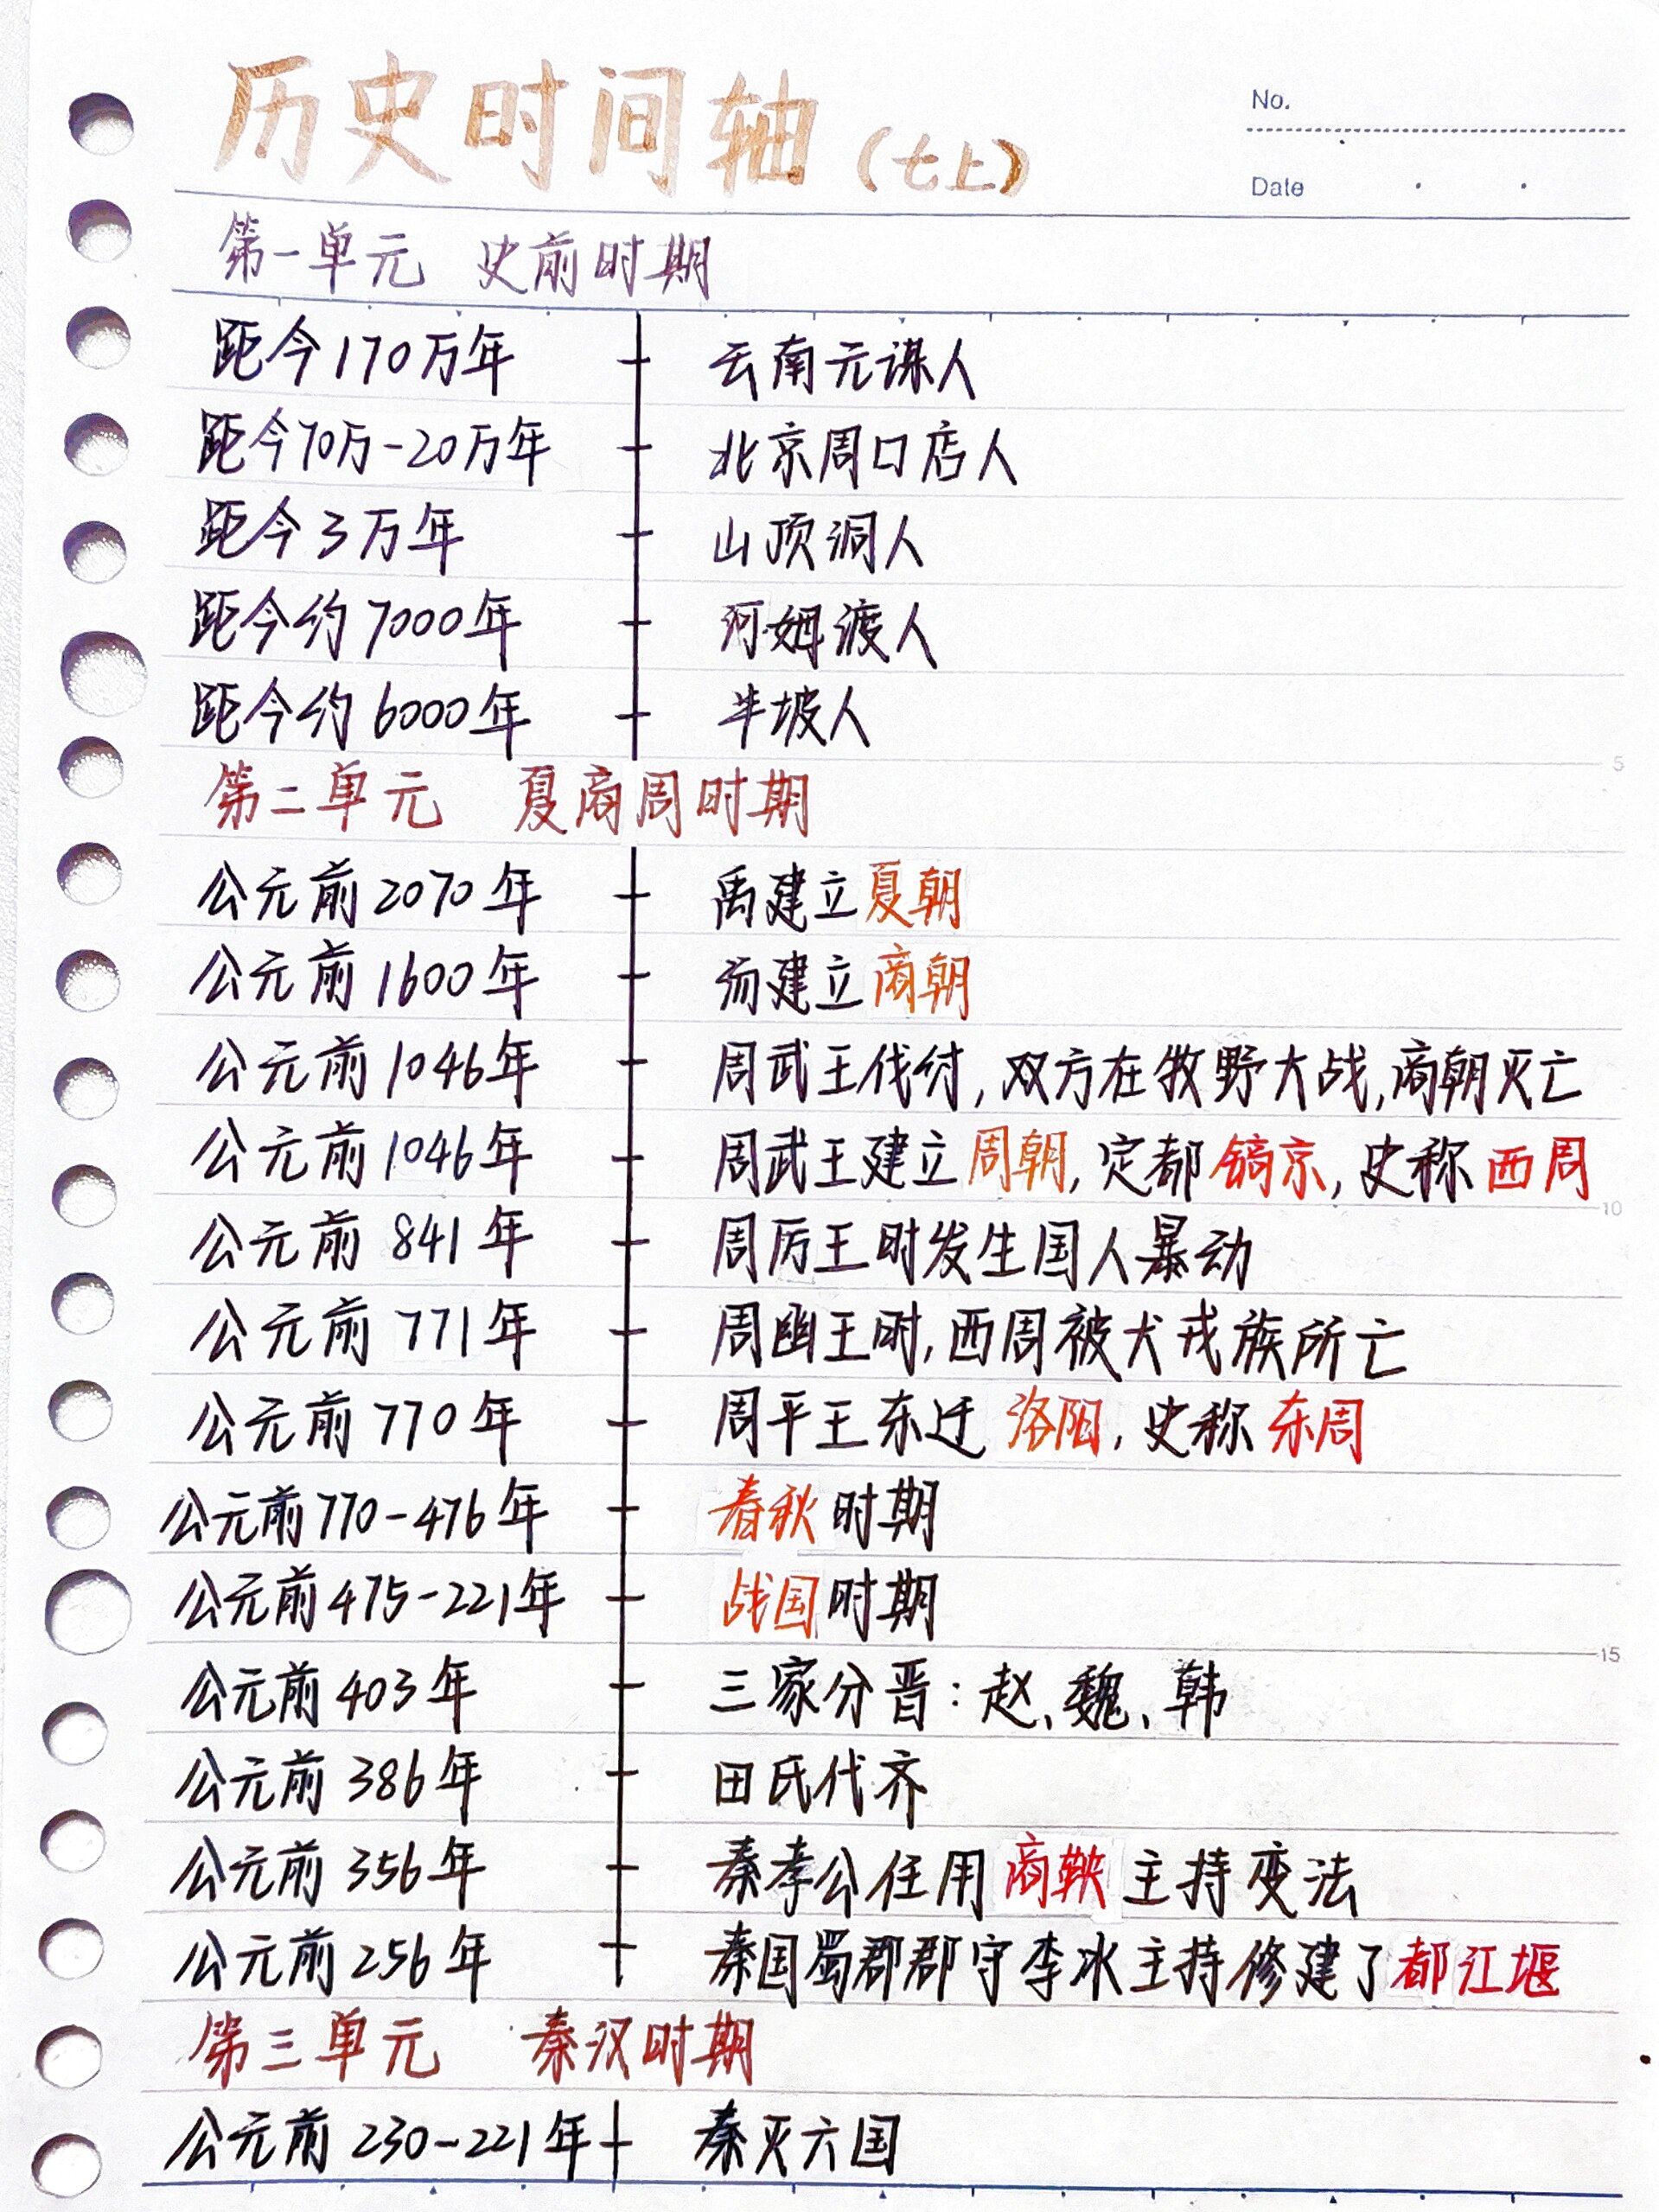 历史时间轴（七上）
No.
Date
第一单元 史前时期
距今170万年 云南元谋人
距今70万-20万年 北京周口店人
距今3万年 山顶洞人
距今约7000年 河姆渡人
距今约6000年 半坡人
5
第二单元 夏商周时期
公元前2070年 禹建立夏朝
公元前1600年 汤建立商朝
公元前1046年 周武王伐纣,双方在牧野大战,商朝灭亡
公元前1046年 周武王建立周朝,定都镐京,史称西周
10
公元前841年 周厉王时发生国人暴动
公元前771年 周幽王时,西周被犬戎族所亡
公元前770年 周平王东迁洛阳,史称东周
公元前770-476年 春秋时期
公元前475-221年 战国时期
15
公元前403年 三家分晋:赵、魏、韩
公元前386年 田氏代齐
公元前356年 秦孝公任用商鞅主持变法
公元前256年 秦国蜀郡郡守李冰主持修建了都江堰
第三单元 秦汉时期
公元前230-221年 秦灭六国